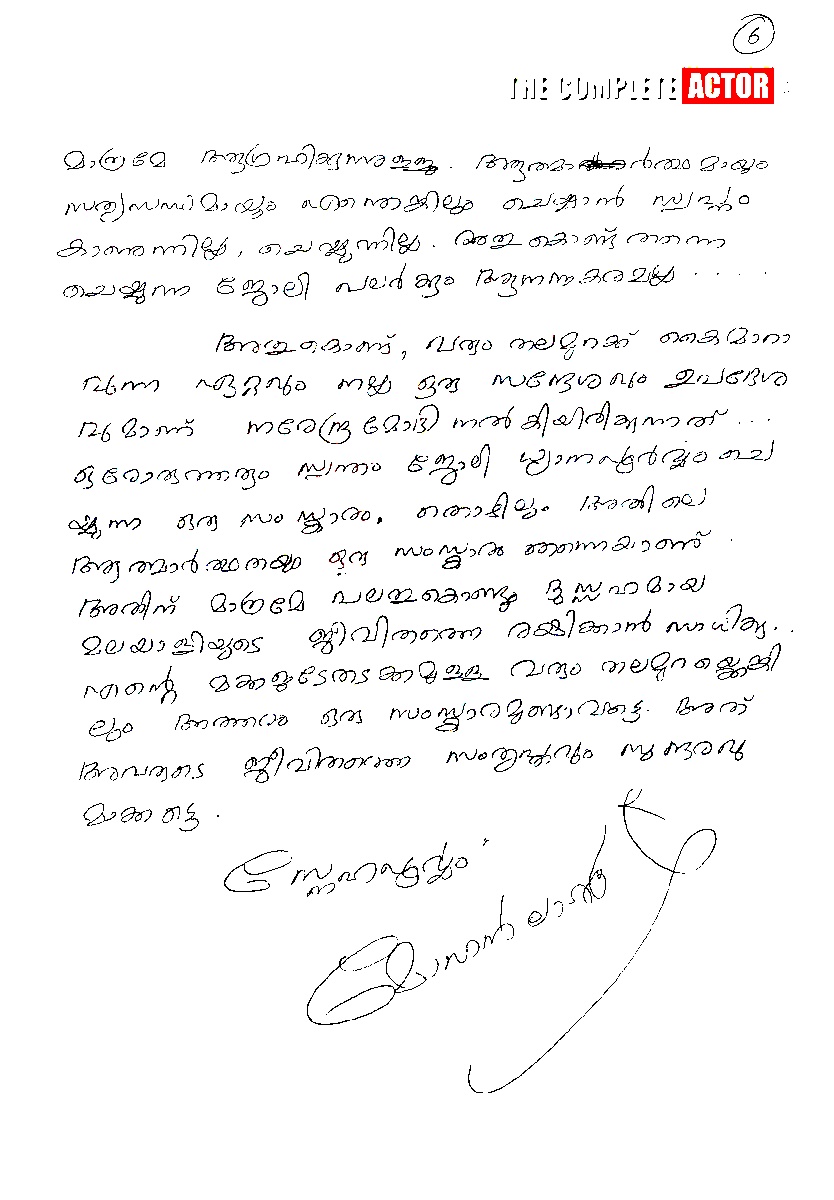 6
THE COMPLETE ACTOR
മാത്രമേ ആഗ്രഹിക്കുന്നുള്ളൂ. ആത്മാർത്ഥമായും
സത്യസന്ധമായും എന്തെങ്കിലും ചെയ്യാൻ സ്വപ്നം
കാണുന്നില്ല, ചെയ്യുന്നില്ല. അതുകൊണ്ടു തന്നെ
ചെയ്യുന്ന ജോലി പലർക്കും ആനന്ദകരമല്ല .....
അതുകൊണ്ട്, വരും തലമുറക്ക് കൈമാറാ
വുന്ന ഏറ്റവും നല്ല ഒരു സന്ദേശവും ഉപദേശ
വുമാണ് നരേന്ദ്ര മോദി നൽകിയിരിക്കുന്നത് ...
ഒരോരുത്തരും സ്വന്തം ജോലി ധ്യാനപൂർവ്വം ചെ
യ്യുന്ന ഒരു സംസ്കാരം. തൊഴിലും അതിലെ
ആത്മാർത്ഥതയും ഒരു സംസ്കാരം തന്നെയാണ്.
അതിന് മാത്രമേ പലതുകൊണ്ടും ദുസ്സഹമായ
മലയാളിയുടെ ജീവിതത്തെ രക്ഷിക്കാൻ സാധിക്കൂ..
എന്റെ മക്കളുടേതടക്കമുള്ള വരും തലമുറയ്ക്കെങ്കി
ലും അത്തരം ഒരു സംസ്കാരമുണ്ടാവട്ടെ. അത്
അവരുടെ ജീവിതത്തെ സംതൃപ്തവും സുന്ദരവു
മാക്കട്ടെ.
സ്നേഹപൂർവ്വം
മോഹൻലാൽ